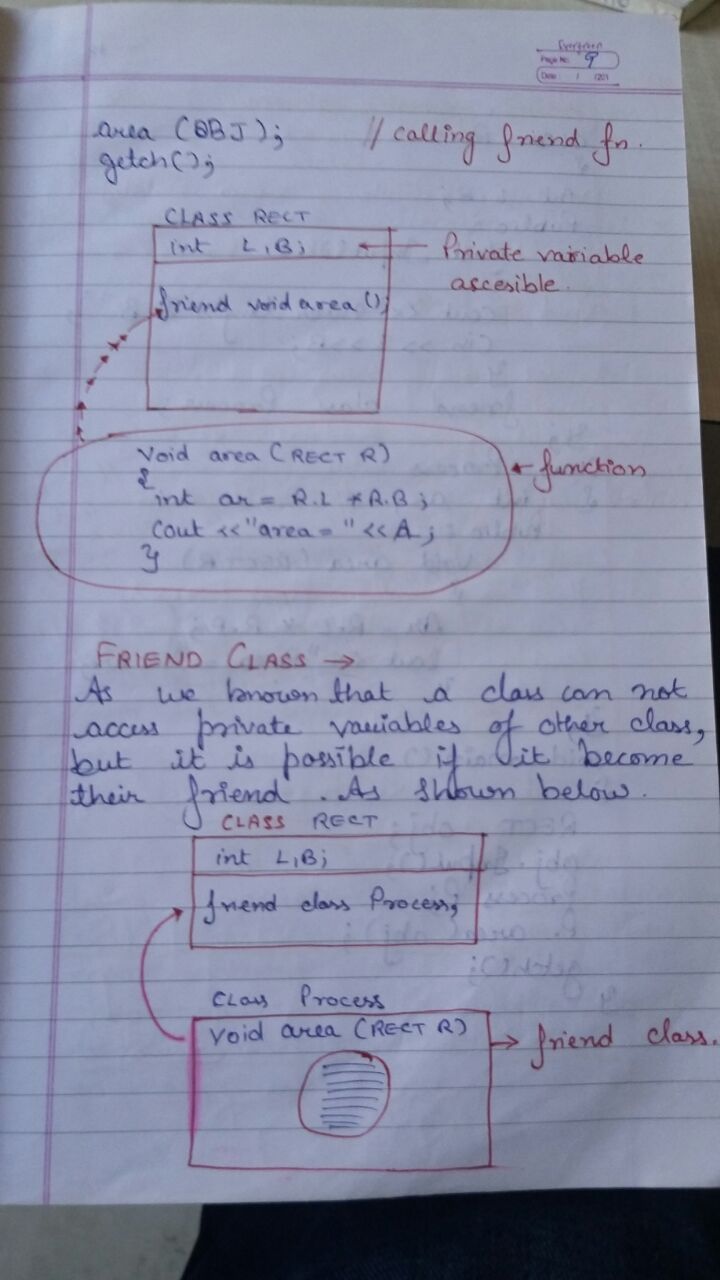 Evergreen
Page No. 9
Date: / /201
area (OBJ); // calling friend fn.
getch();
CLASS RECT
int L,B; Private variable
accesible.
friend void area();
void area (RECT R)
{
int ar = R.L * R.B;
cout <<"area = " << A;
}
function
FRIEND CLASS →
As we known that a class can not
access private variables of other class,
but it is possible if it become
their friend . As shown below.
CLASS RECT
int L,B;
friend class Process;
Class Process
void area (RECT R) → friend class.